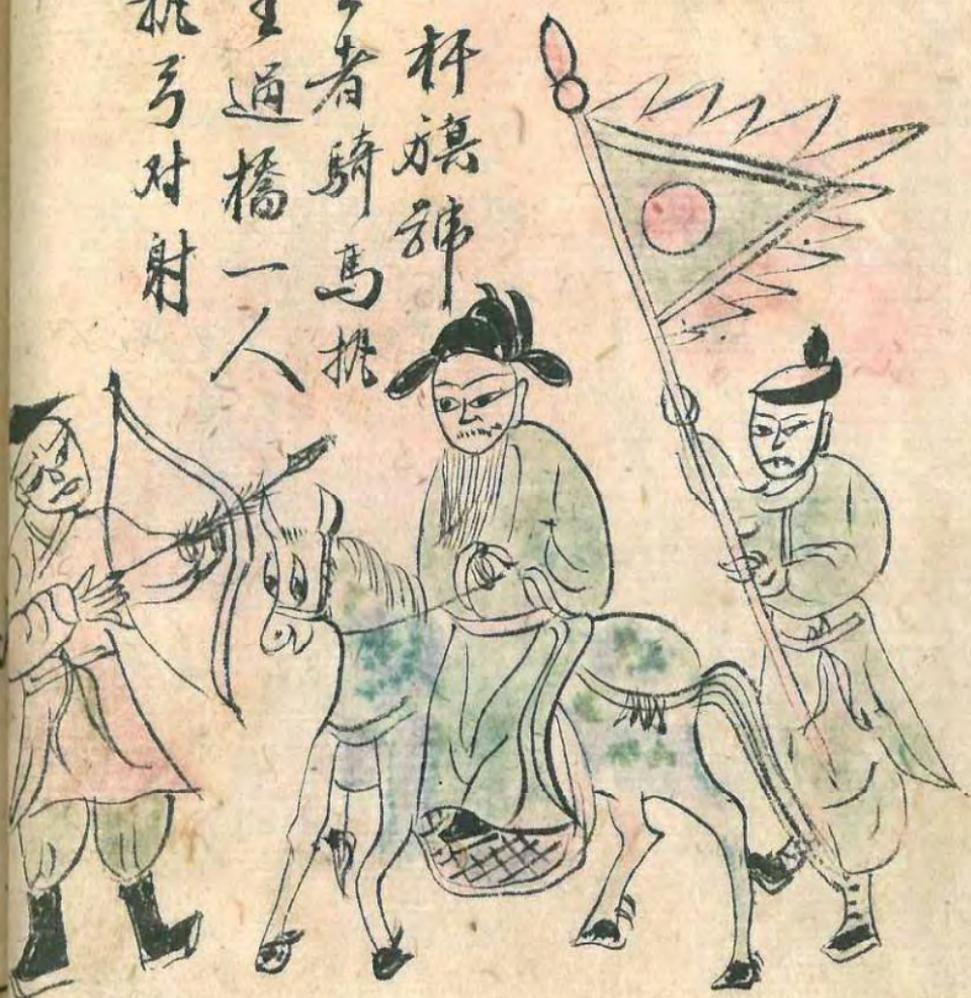 杆旗號
者騎馬挑
過橋一人
挑弓对射